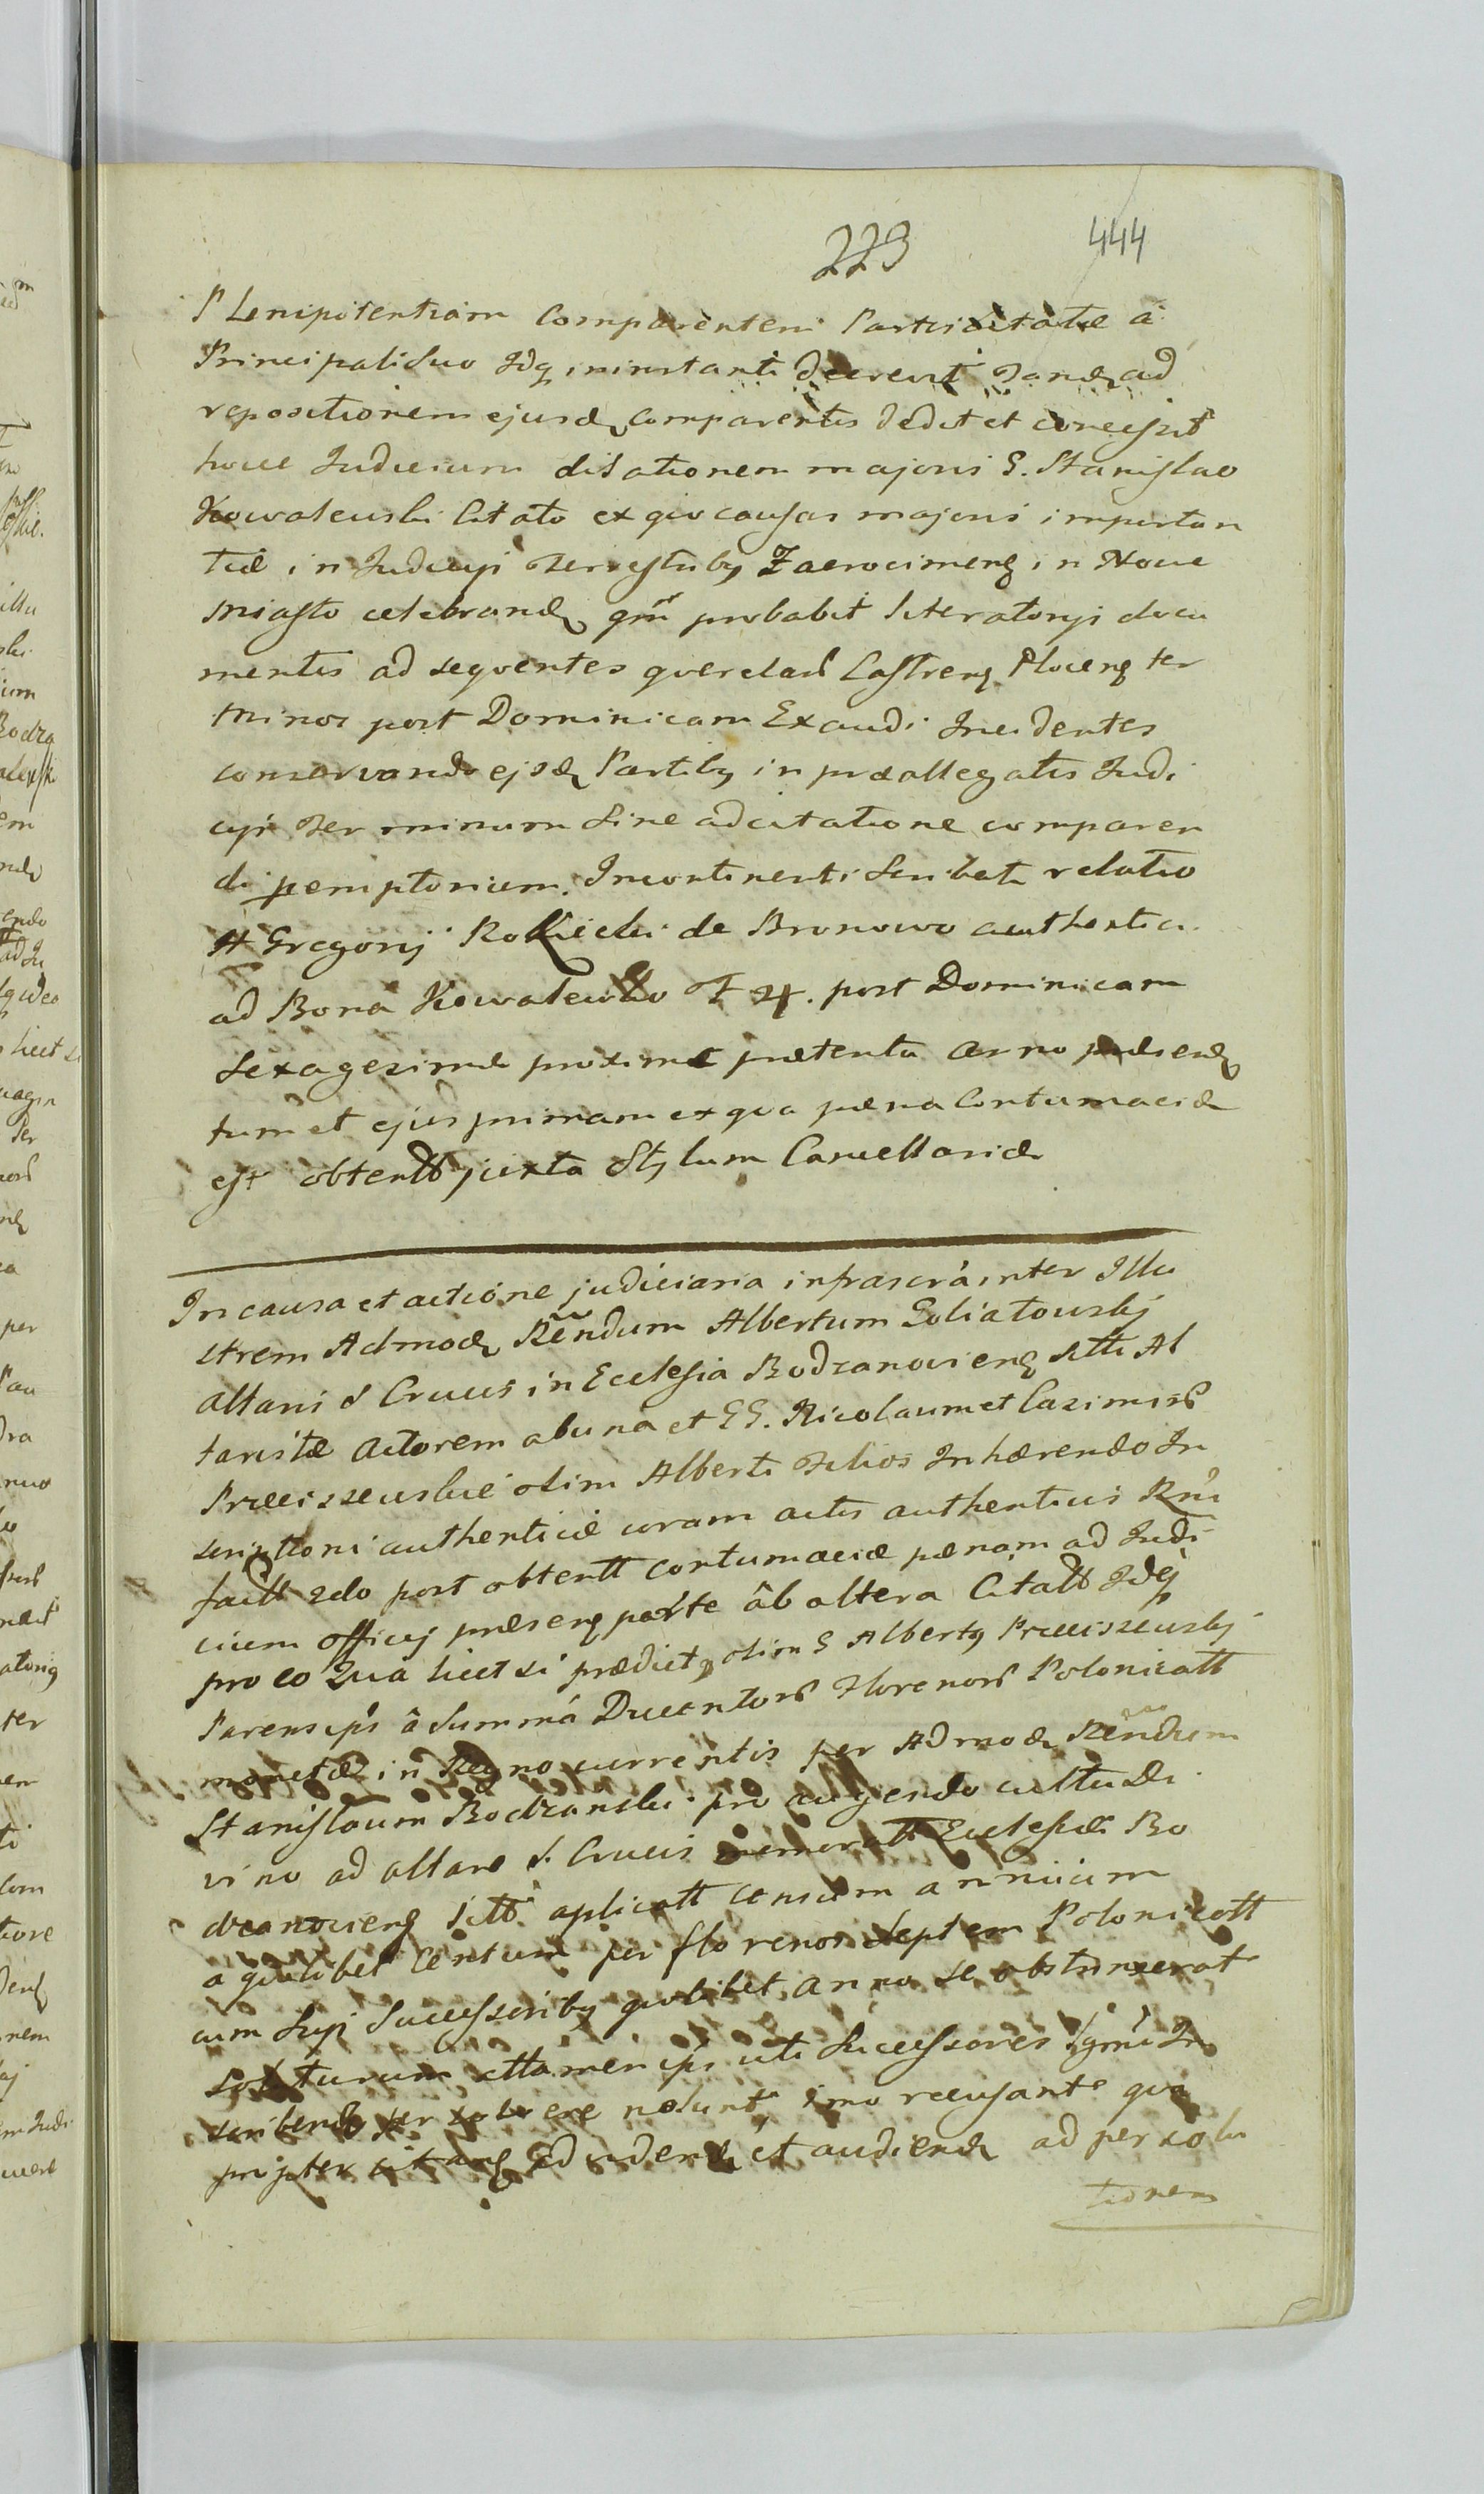 223 444
Plenipotentiam Comparentem Parti Citatæ a
Principali suo Idq ininstanti decrevit Tandẽ ad
repositionem ejusdẽ comparentis dedit et concessit
hocce Judicium dilationem majoris G. Stanislao
Kowalewski Citato ex quo causas majoris importan
tiæ in Judicijs Terrestribq Zacrocimenẽ in Nowe
Miasto celebrandẽ qm probabit literatorijs docu
mentis ad sequentes querelarũ Castrenẽ Plocenẽ ter
minos post Dominicam Exaudi Incidentes
conservando ejsdẽ Partibq in præallegatis Judi
cijs Terminum Sine adcitatione comparen
di pemptorium. Incontinenti Scribat relatio
H Gregorij Rokicki de Bronowo authentica
ad Bona Kowalewko F 4. post Dominicam
Sexagesimæ proxime præterita anno præsenẽ
tum et ejus primam ex qua pæna Contumaciæ
est obtenta juxta Stylum Cancellariæ
In causa et actione judiciaria infrascra inter Illu
strem Admodẽ Rẽndum Albertum Goliatowskij
Altaris S Crucis in Ecclesia Bodzanoviensẽ sitti Al
taristæ Actorem ab una et GG. Nicolaum et Casimirũ
Pracciszewskie olim Alberti Filios Inhærendo In
scriptioni authenticæ coram actis authenticis Rm
factt 2do post obtentt contumaciæ pænam ad Judi
cium officij præsenẽ parte âb altera Citatt Idq
pro eo Quia licet si prædictq olim G Albertq Pracciszewskij
Parens ips â Summâ Ducentorũ Florenorũ Polonicatt
monetæ in Regno currentis per Admodẽ Rẽndum
Stanislaum Bodzanski pro augendo cultu Di
vino ad altare S. Crucis memoratt Ecclesiæ Bo
dzanoviensẽ Sitt aplicatt Censum annuum
a quolibet Centum per florenos Septem Polonicatt
cum Suis Successoribq quolibet anno se obstrinxerat
soluturum attamen ips uti Successores
scribendẽ per solvere nolunt imo recusant qua
propter citanẽ ad videndẽ et audiendẽ ad persolu
tionem